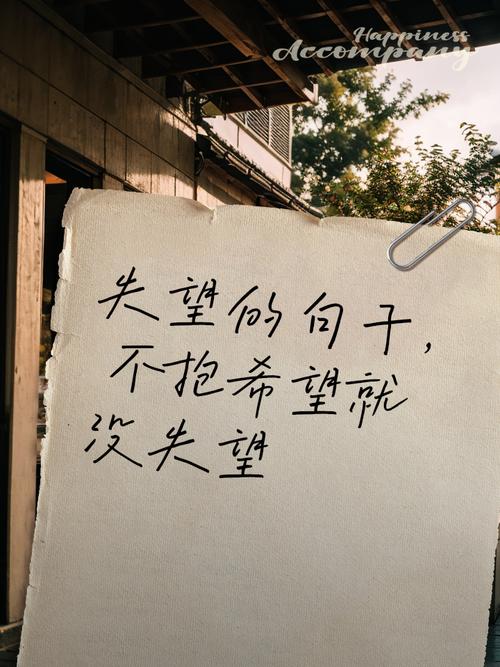 Happiness
Accompany
失望的句子,
不抱希望就
没失望